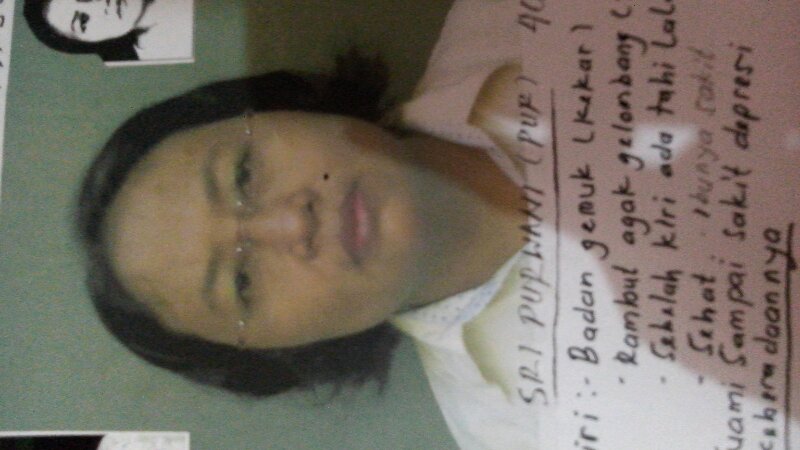 SRI PURWANI (PUR) 40
iri :- Badan gemuk (kekar)
- Rambut agak gelombang (
- Sebelah kiri ada tahi lal
- Sehat. ibunya sakit
uami sampai sakit depresi
keberadaannya